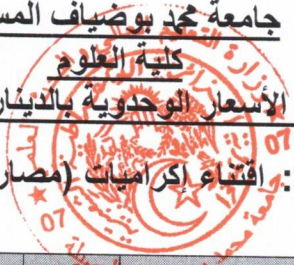 جامعة محمد بوضياف المس
كلية العلوم
الأسعار الوحدوية بالدينار
: اقتناء إكراميات (مصار
07
07